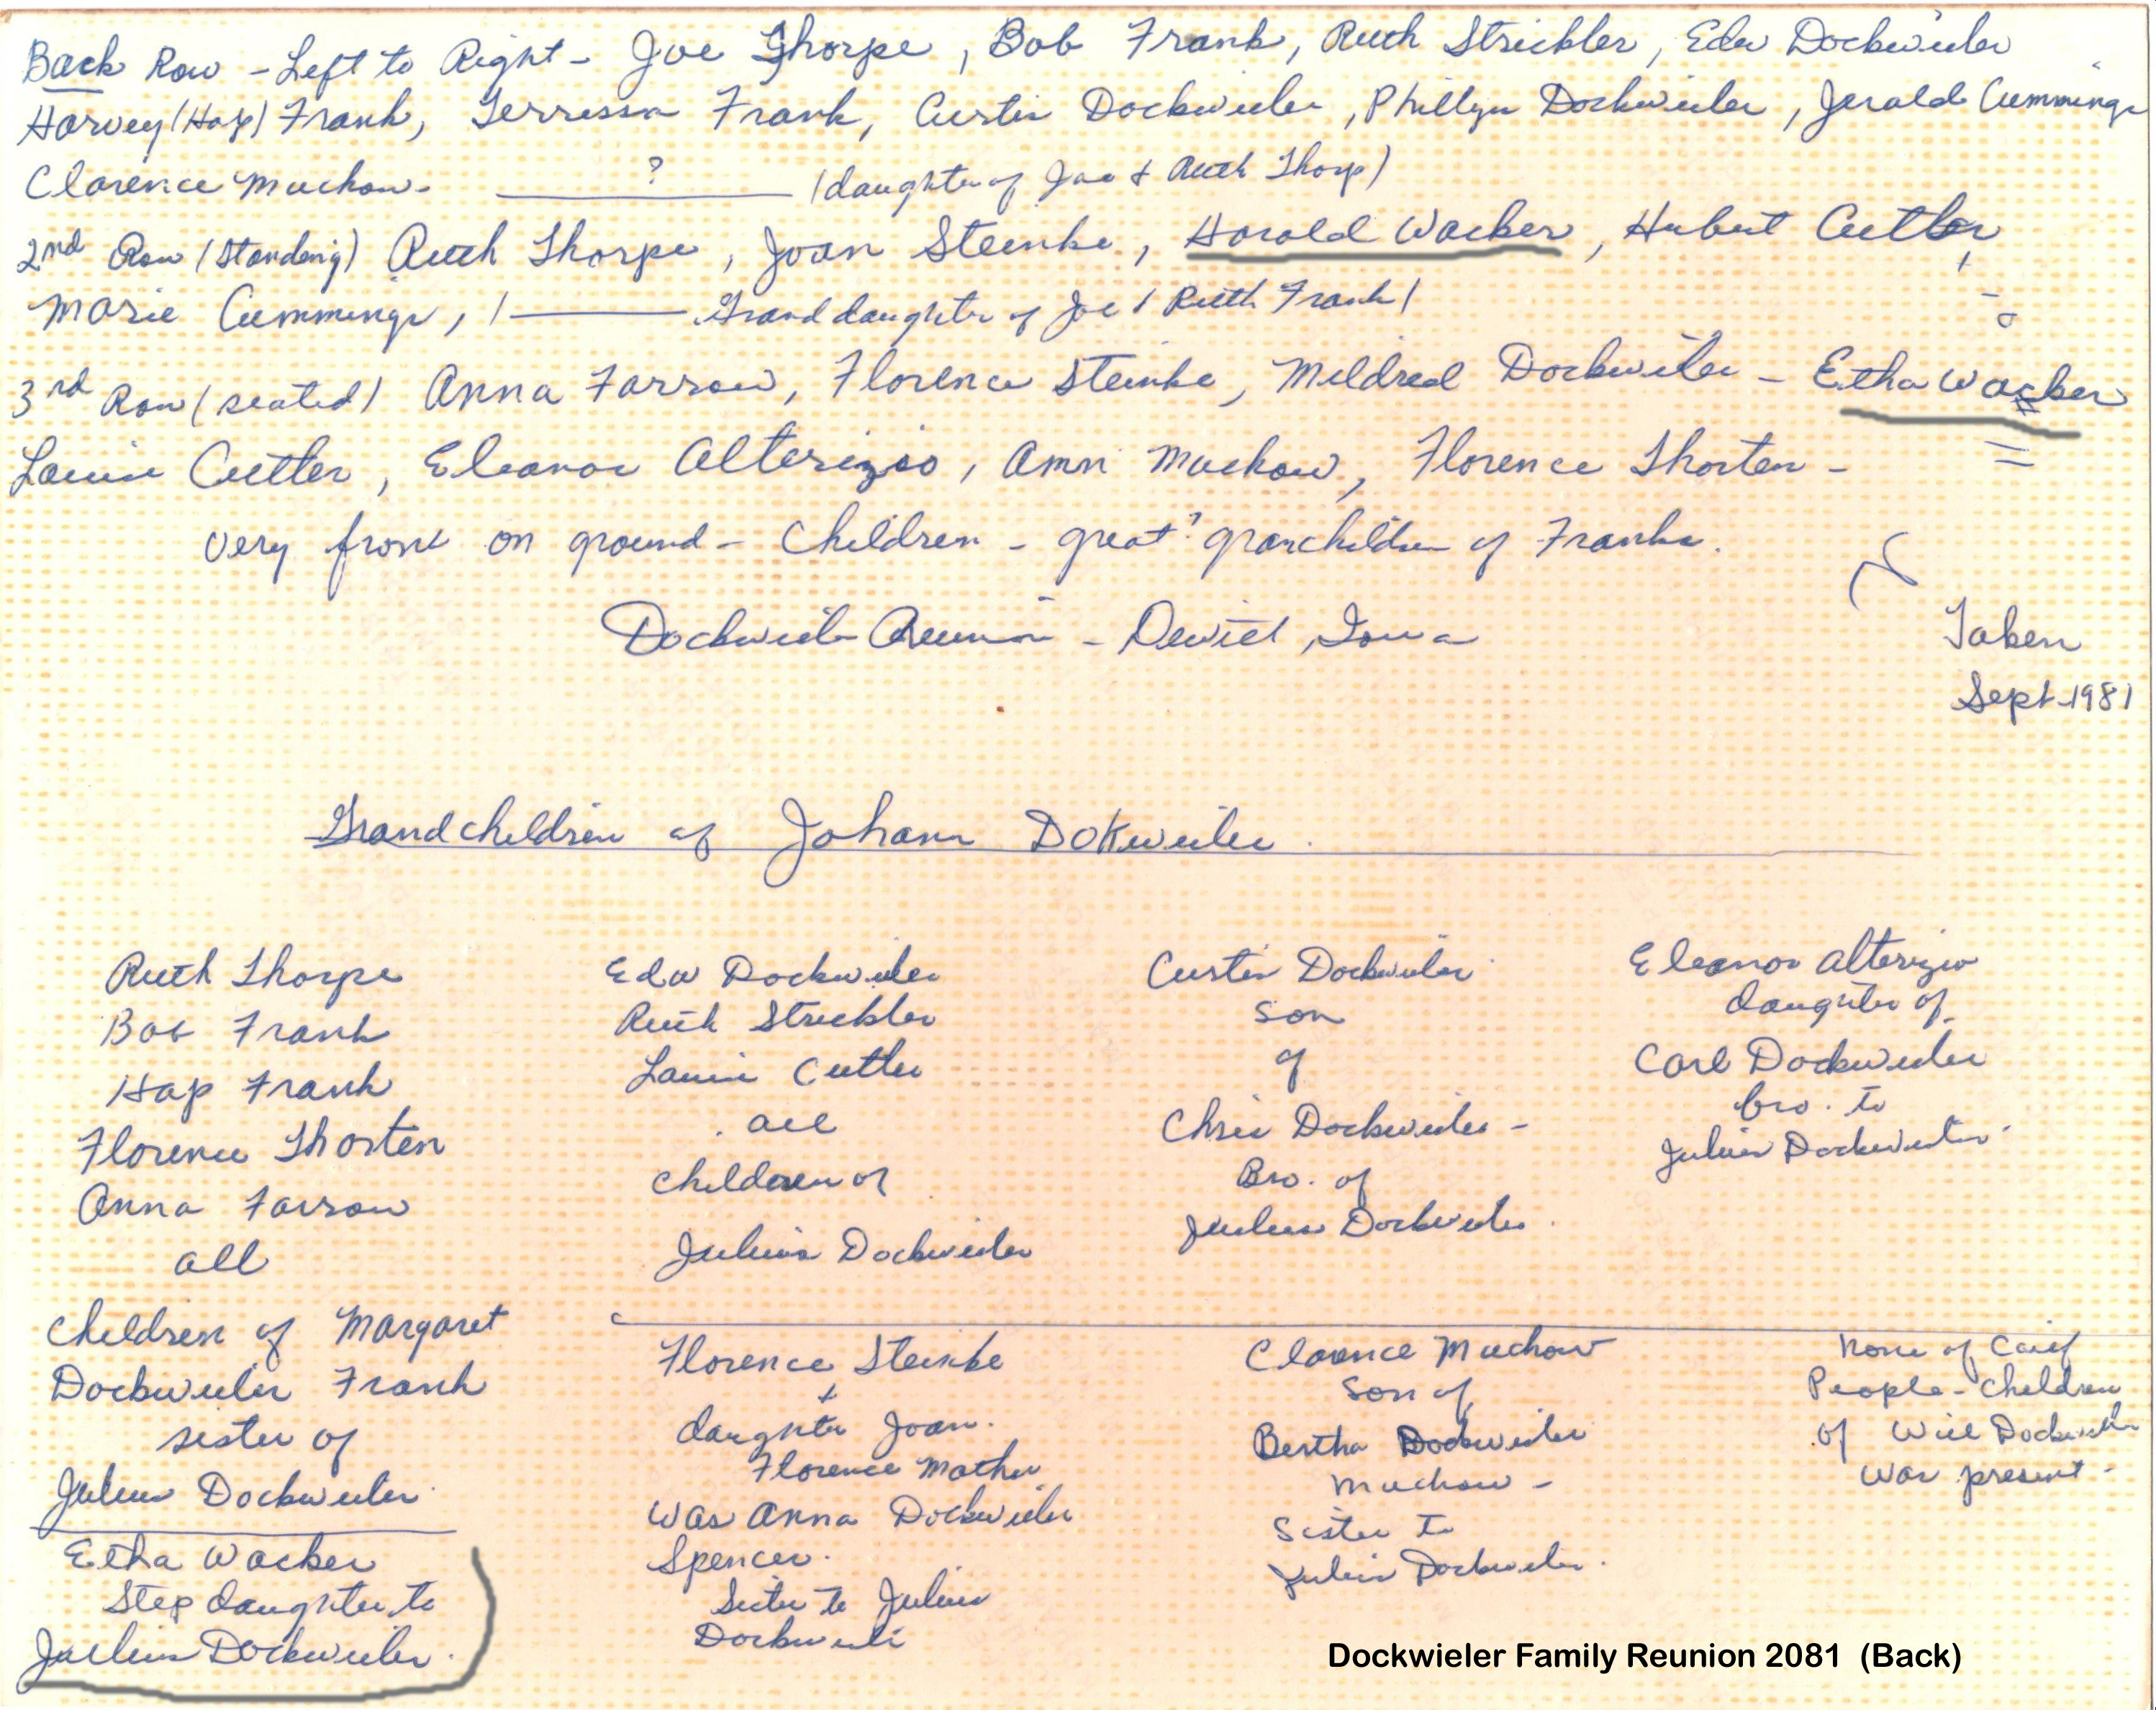 Back Row - Left to Right - Joe Thorpe, Bob Frank, Ruth Strickler, Eda Dockweiler
Harvey (Hap) Frank, Terressa Frank, Curtis Dockweiler, Phillyn Dockweiler, Jerald Cummings
Clarence Muchow - ? (daughter of Joe & Ruth Thorp)
2nd Row (Standing) Ruth Thorpe, Joan Steinke, Harold Wacker, Hubert Cutler,
Marie Cummings, ( Granddaughter of Joe & Ruth Frank)
3rd Row (seated) Anna Farrow, Florence Steinke, Mildred Dockweiler - Etha Wacker
Louise Cutler, Eleanor Alterizio, Ann Muchow, Florence Thorten -
very front on ground - Children - great? granchildren of Franks.
Dockweiler Reunion - Dewitt, Iowa
Taken
Sept 1981
Grandchildren of Johann Dokweiler.
Ruth Thorpe
Bob Frank
Hap Frank
Florence Thorten
Anna Farrow
all
Children of Margaret
Dockweiler Frank
sister of
Julius Dockweiler
Etha Wacker
Step daughter to
Julius Dockweiler.
Eda Dockweiler
Ruth Strickler
Louise Cutler
all
children of
Julius Dockweiler
Florence Steinke
+
daughter Joan.
Florence Mother
was Anna Dockweiler
Spencer.
Sister to Julius
Dockweiler
Curtis Dockweiler
son
of
Chris Dockweiler -
Bro. of
Julius Dockweiler.
Clarence Muchow
Son of
Bertha Dockweiler
Muchow -
Sister to
Julius Dockweiler.
Eleanor Alterizio
daughter of
Carl Dockweiler
bro. to
Julius Dockweiler
None of
People - Children
of Will Dockweiler
was present -
Dockwieler Family Reunion 2081 (Back)